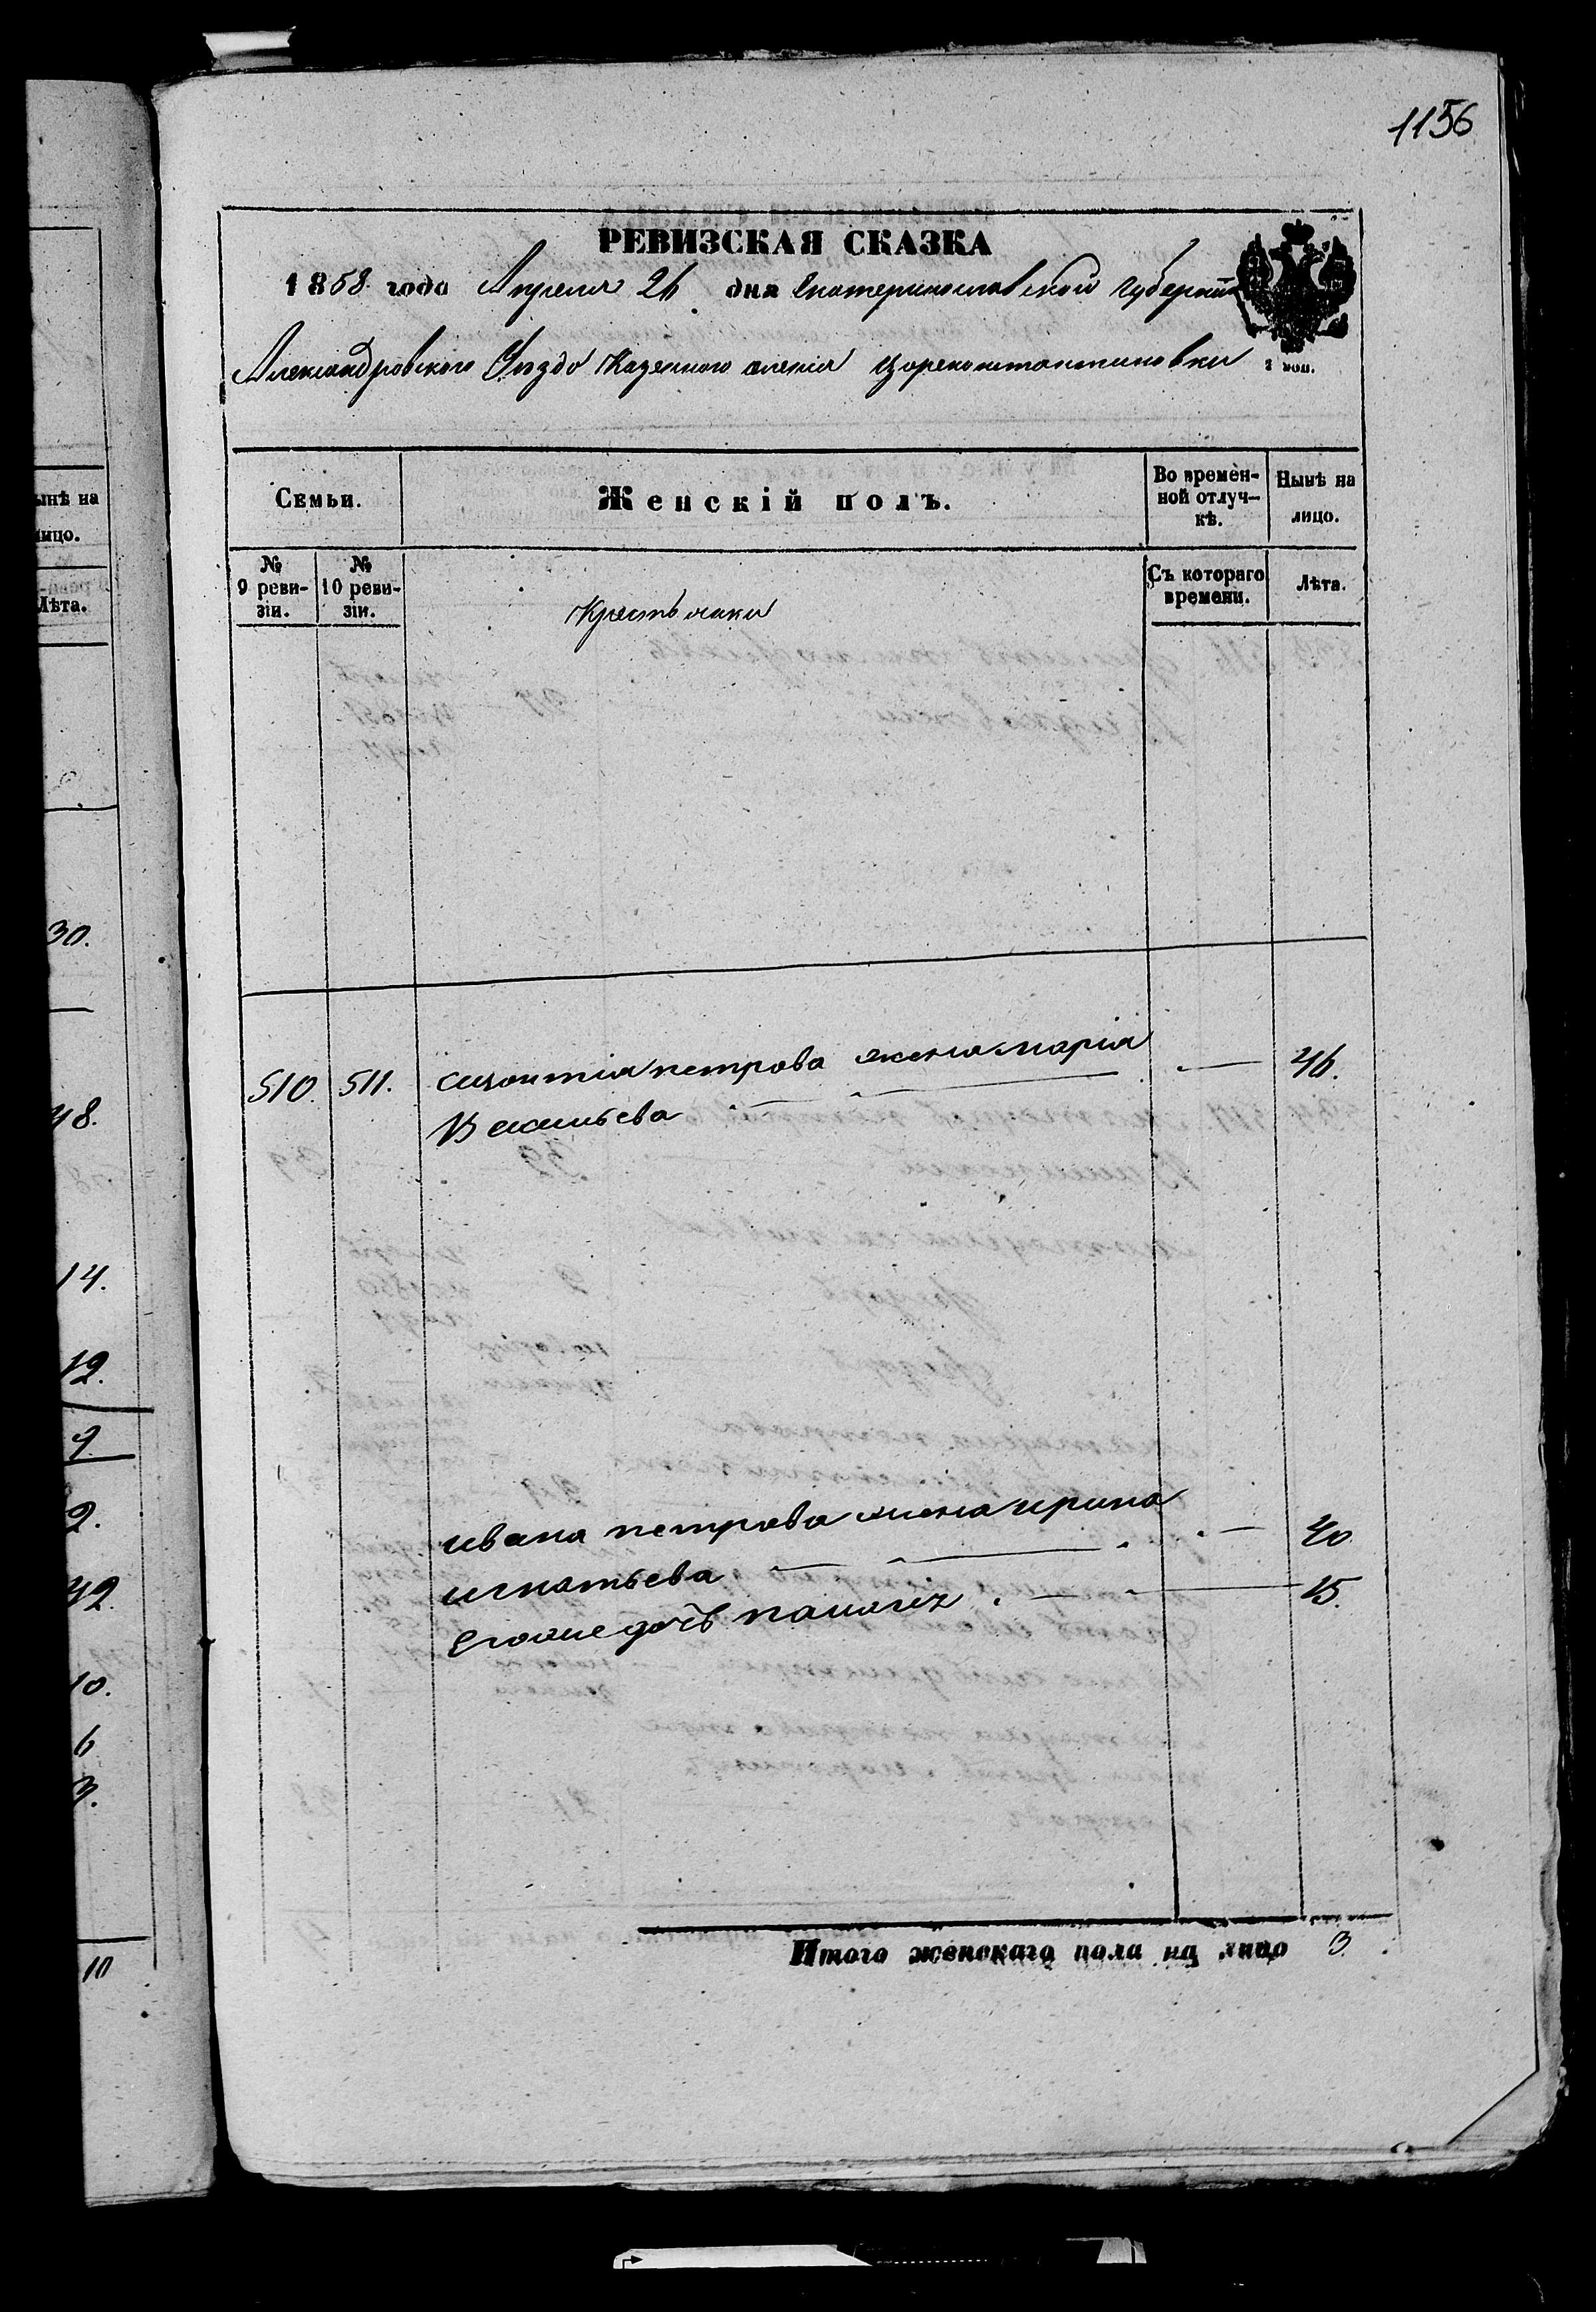 1156
РЕВИЗСКАЯ СКАЗКА
1858 года Апреля 26 дня Екатеринославской губерніи
Александровского Уезда Казенного селенія Цареконстантиновки
2 коп.
Семьи.
Женскій полъ.
Во времен-
ной отлуч-
кѣ.
Нынѣ на
лицо.
№
9 реви-
зіи.
№
10 реви-
зіи.
Съ котораго
времени.
Лѣта.
Крестьянки
510. 511. петрова жена марія 46.
Васильева
ивана петрова жена ирина 40.
игнатьева
Егоже дочь 15.
Итого женскаго пола на лицо 3.
ынѣ на
лицо.
Лѣта.
30.
48.
14.
12.
9.
2.
42.
10.
6
3.
10